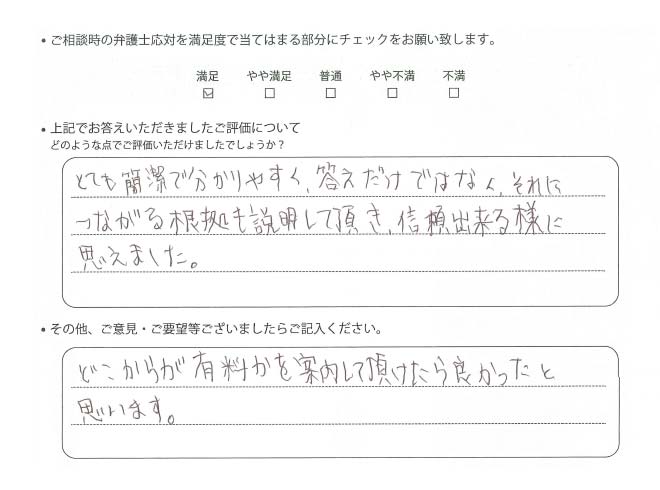 • ご相談時の弁護士応対を満足度で当てはまる部分にチェックをお願い致します。
満足 やや満足 普通 やや不満 不満
☑ □ □ □ □
• 上記でお答えいただきましたご評価について
どのような点でご評価いただけましたでしょうか？
とても簡潔で分かりやすく、答えだけではなく、それに
つながる根拠も説明して頂き、信頼出来る様に
思えました。
• その他、ご意見・ご要望等ございましたらご記入ください。
どこからが有料かを案内して頂けたら良かったと
思います。